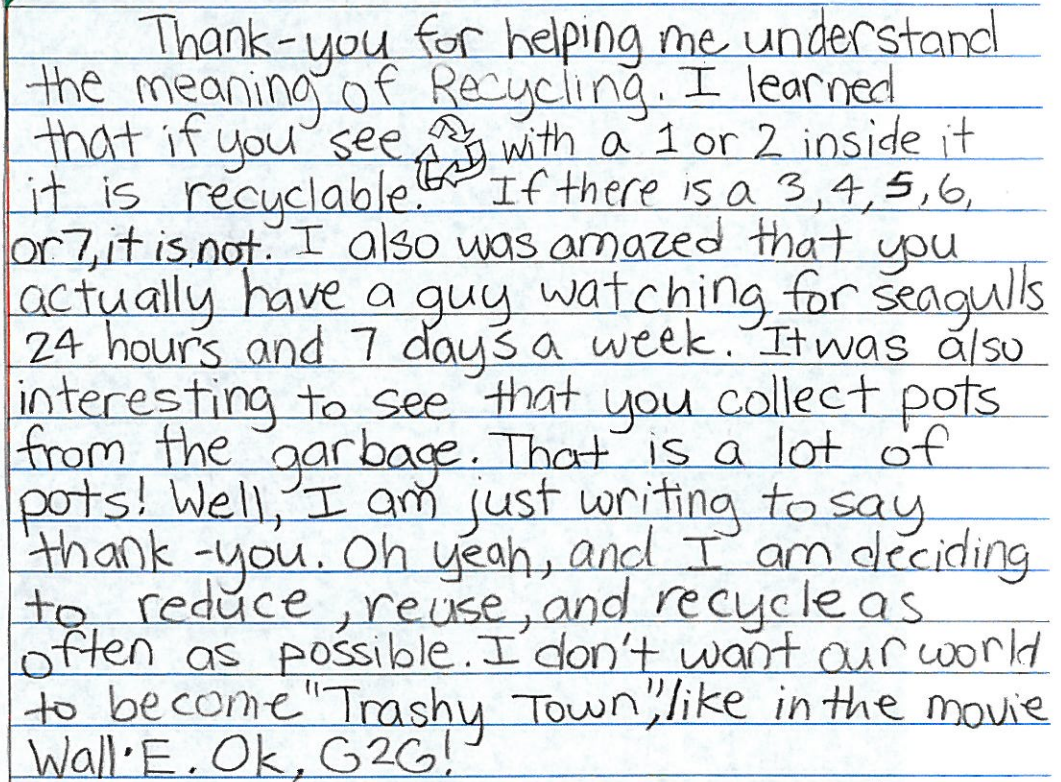 Thank-you for helping me understand
the meaning of Recycling. I learned
that if you see with a 1 or 2 inside it
it is recyclable. If there is a 3, 4, 5, 6,
or 7, it is not. I also was amazed that you
actually have a guy watching for seagulls
24 hours and 7 days a week. It was also
interesting to see that you collect pots
from the garbage. That is a lot of
pots! Well, I am just writing to say
thank-you. Oh yeah, and I am deciding
to reduce, reuse, and recycle as
often as possible. I don't want our world
to become "Trashy Town", like in the movie
Wall·E. Ok, G2G!